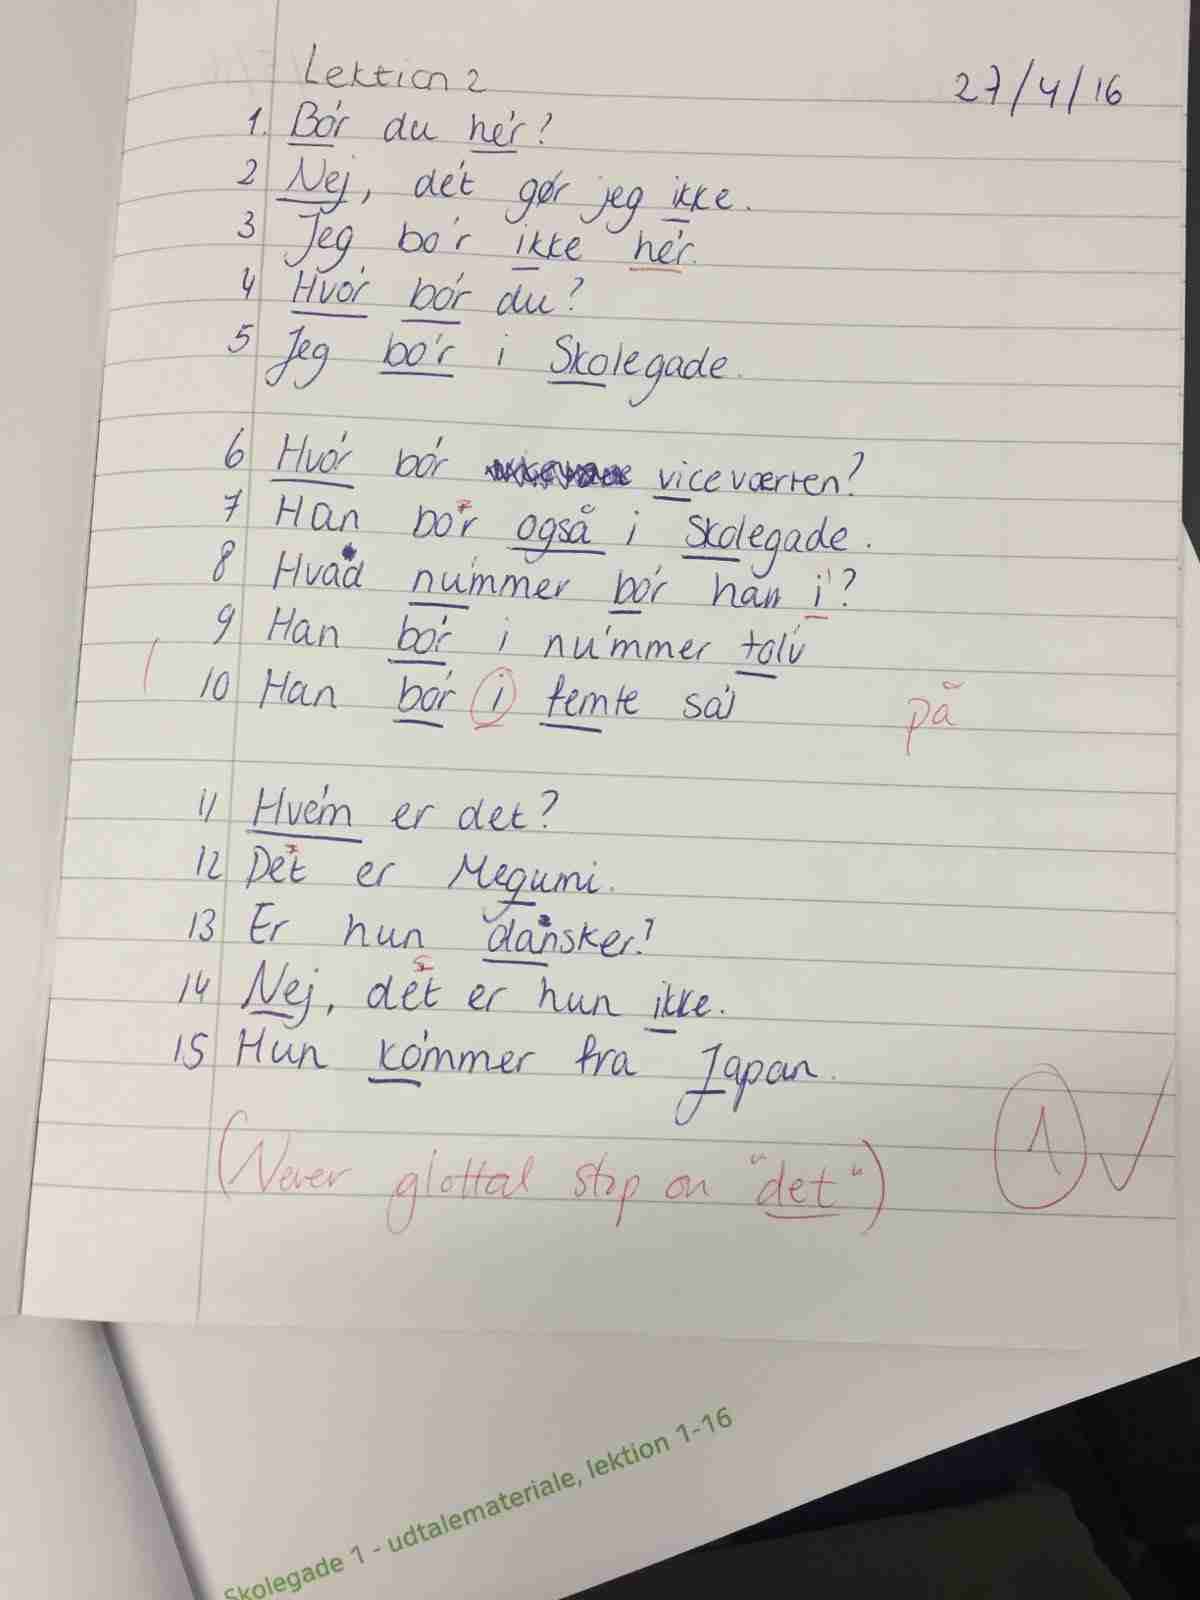 Lektion 2
27/4/16
1. Bo'r du he'r?
2 Nej, de't gør jeg ikke.
3 Jeg bo'r ikke he'r.
4 Hvo'r bo'r du?
5 Jeg bo'r i Skolegade.
6 Hvo'r bo'r viceværten?
7 Han bo'r også i Skolegade.
8 Hvad nu'mmer bo'r han i'?
9 Han bo'r i nu'mmer tol'v
10 Han bo'r i femte sa'l på
11 Hve'm er det?
12 Det er Megumi.
13 Er hun dansker?
14 Nej, det er hun ikke.
15 Hun ko'mmer fra Japan.
(Never glottal stop on "det")
1 ✓
Skolegade 1 - udtalemateriale, lektion 1-16